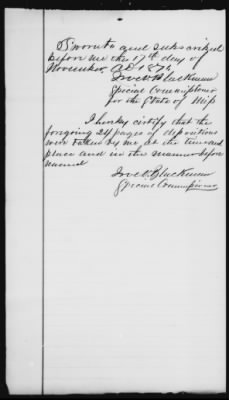 Sworn to and subscribed
before me this 17th day of
November, AD 187
Special Commissioner
for the State of Miss
I hereby certify that the
foregoing 24 pages of depositions
were taken by me at the time and
place and in the manner before
named
Blackman
Special Commissioner